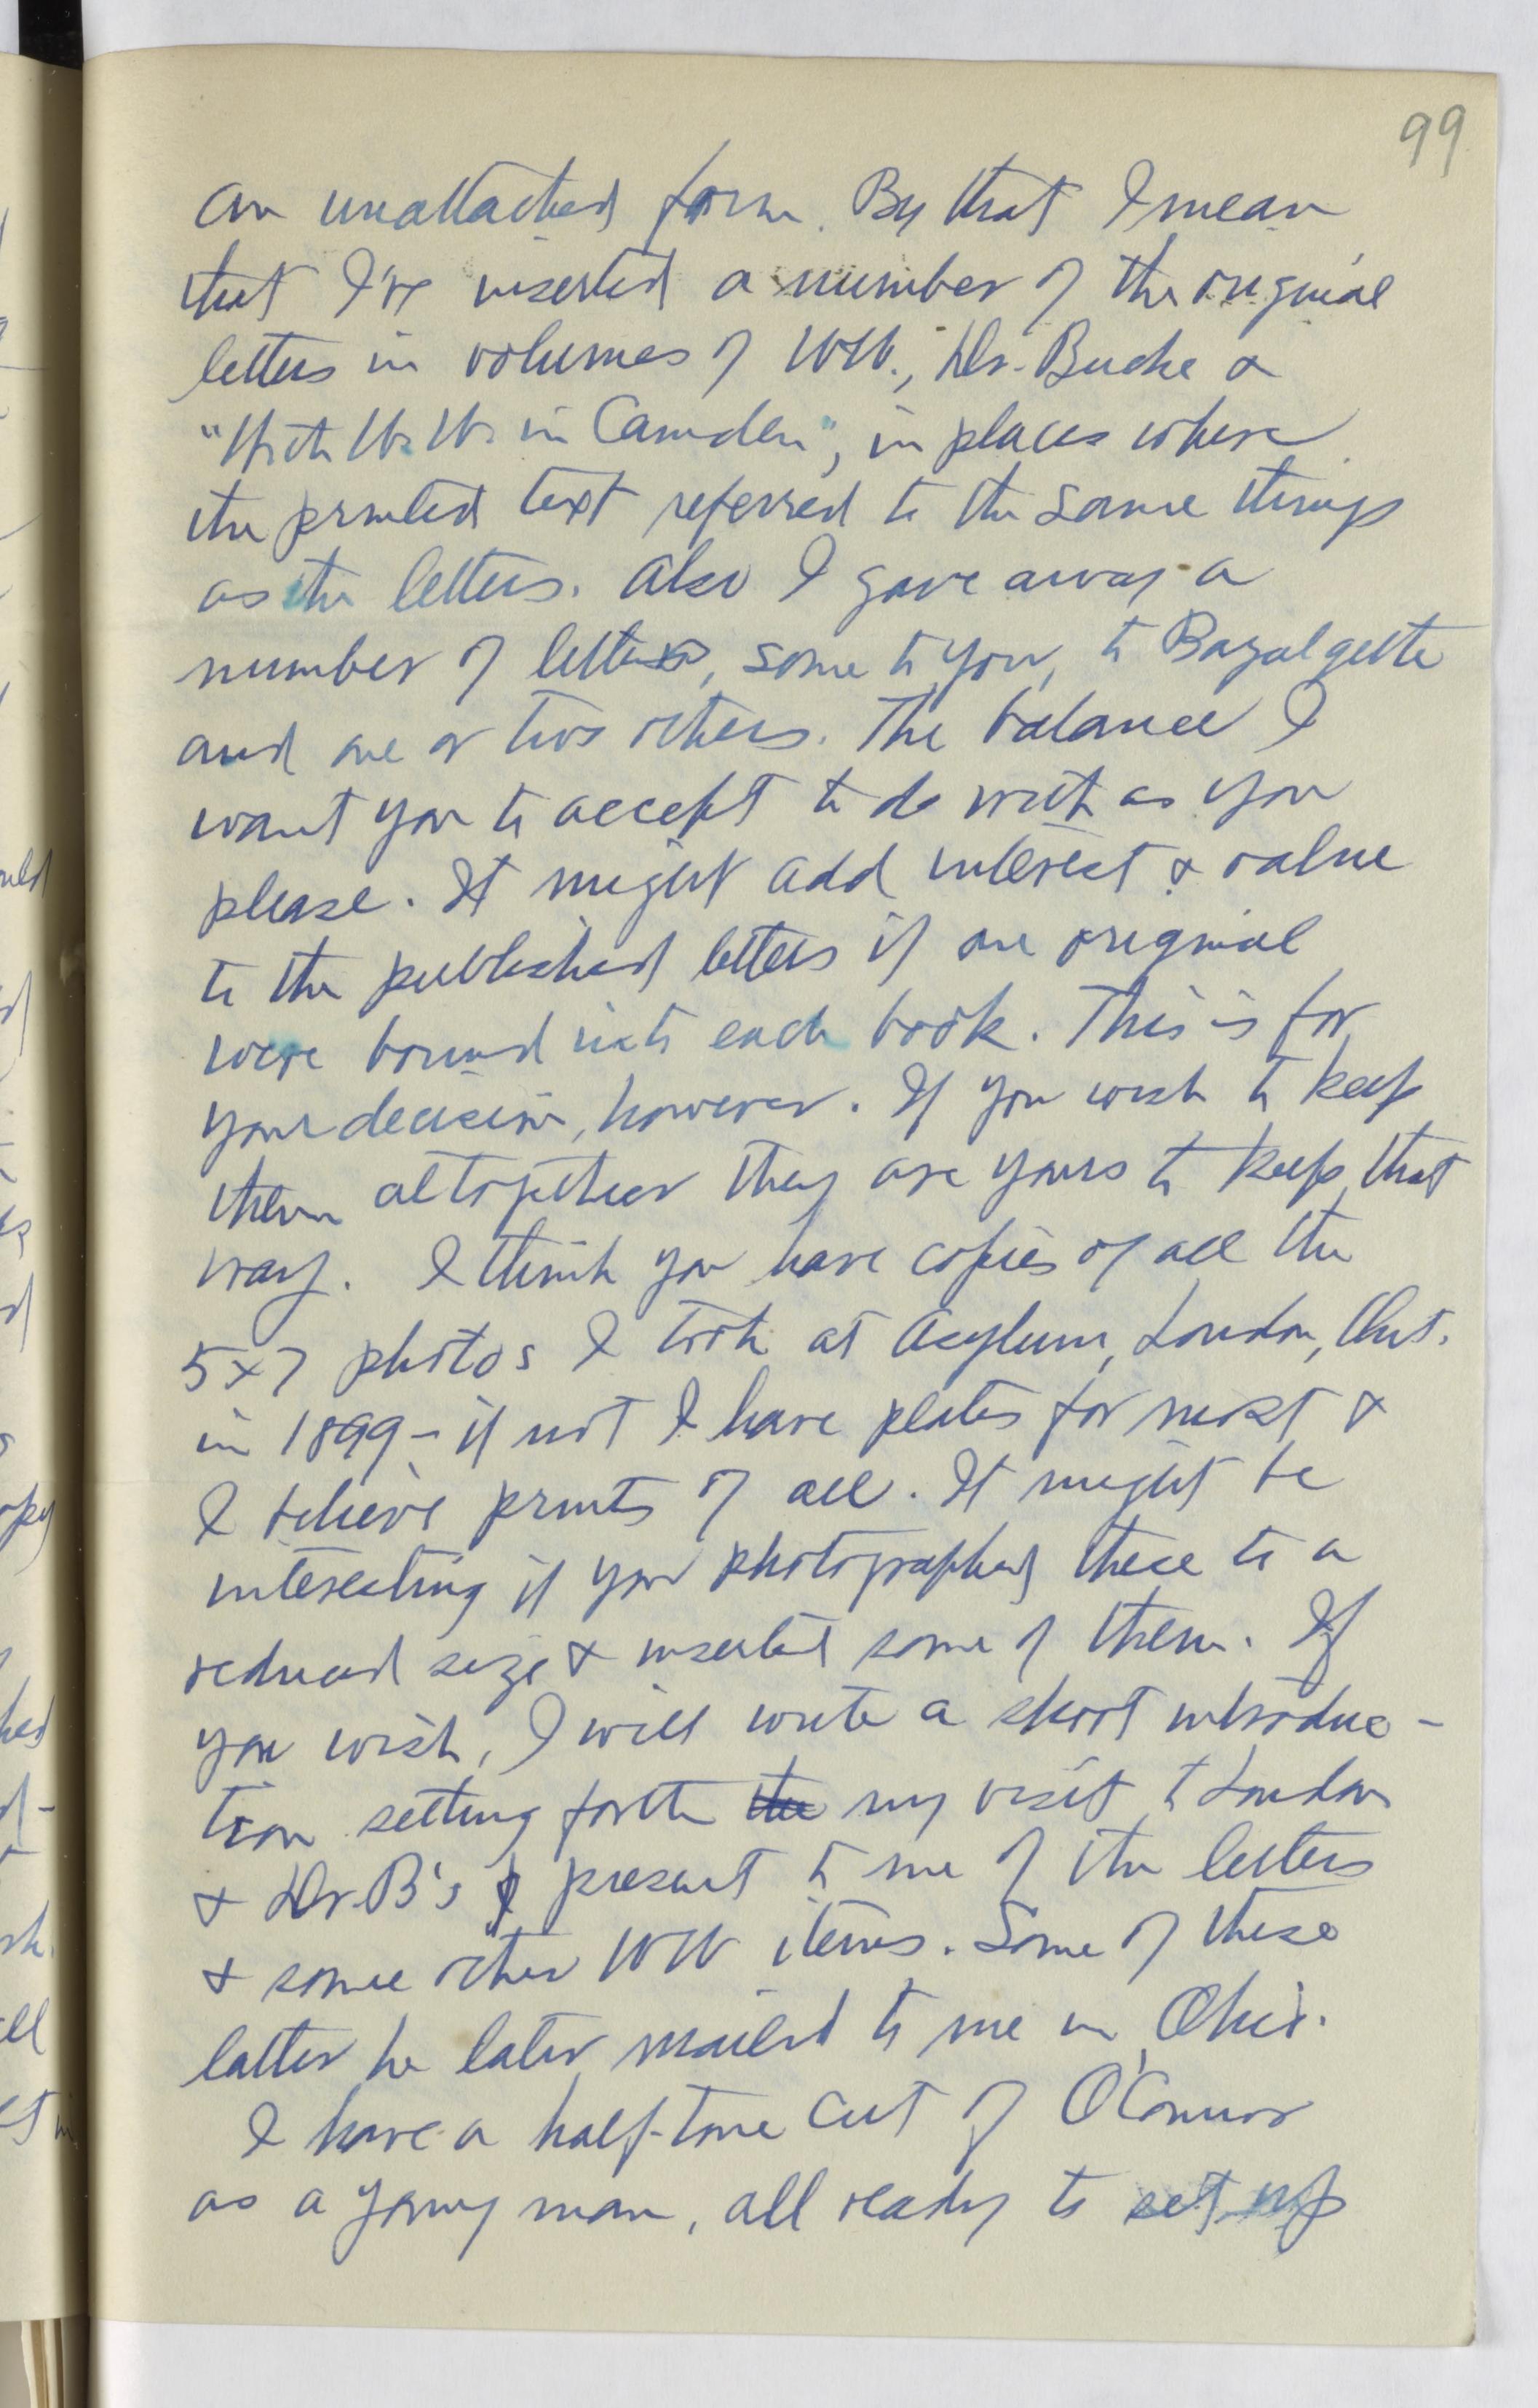 99
an unattached form. By that I mean
that I've inserted a number of the original
letters in volumes of WW., Dr. Bucke &
"With W. W. in Camden", in places where
the printed text referred to the same things
as the letters. Also I gave away a
number of letters, some to you, to Bazalgette
and one or two others. The balance I
want you to accept to do with as you
please. It might add interest & value
to the published letters if one original
were bound into each book. This is for
your decision, however. If you wish to keep
them altogether they are yours to keep that
way. I think you have copies of all the
5x7 photos I took at Asylum, London, Ont.
in 1899 - if not I have plates for most &
I believe prints of all. It might be
interesting if you photographed these to a
reduced size & inserted some of them. If
you wish, I will write a short introduc-
tion setting forth the my visit to London
& Dr. B's present to me of the letters
& some other WW items. Some of these
latter he later mailed to me in Ohio.
I have a half-tone cut of O'Connor
as a young man, all ready to set up